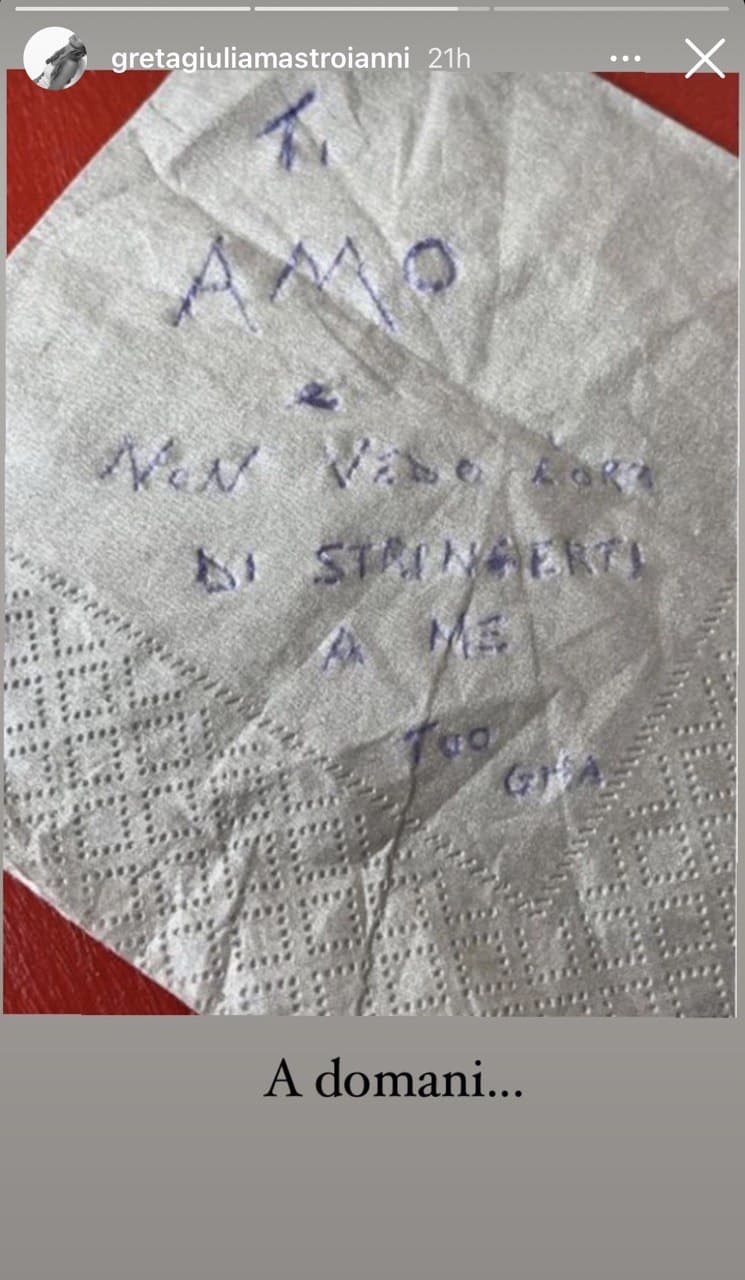 gretagiuliamastroianni 21h
Ti
AMO
e
NON VEDO L'ORA
DI STRINGERTI
A ME
TUO
A domani...